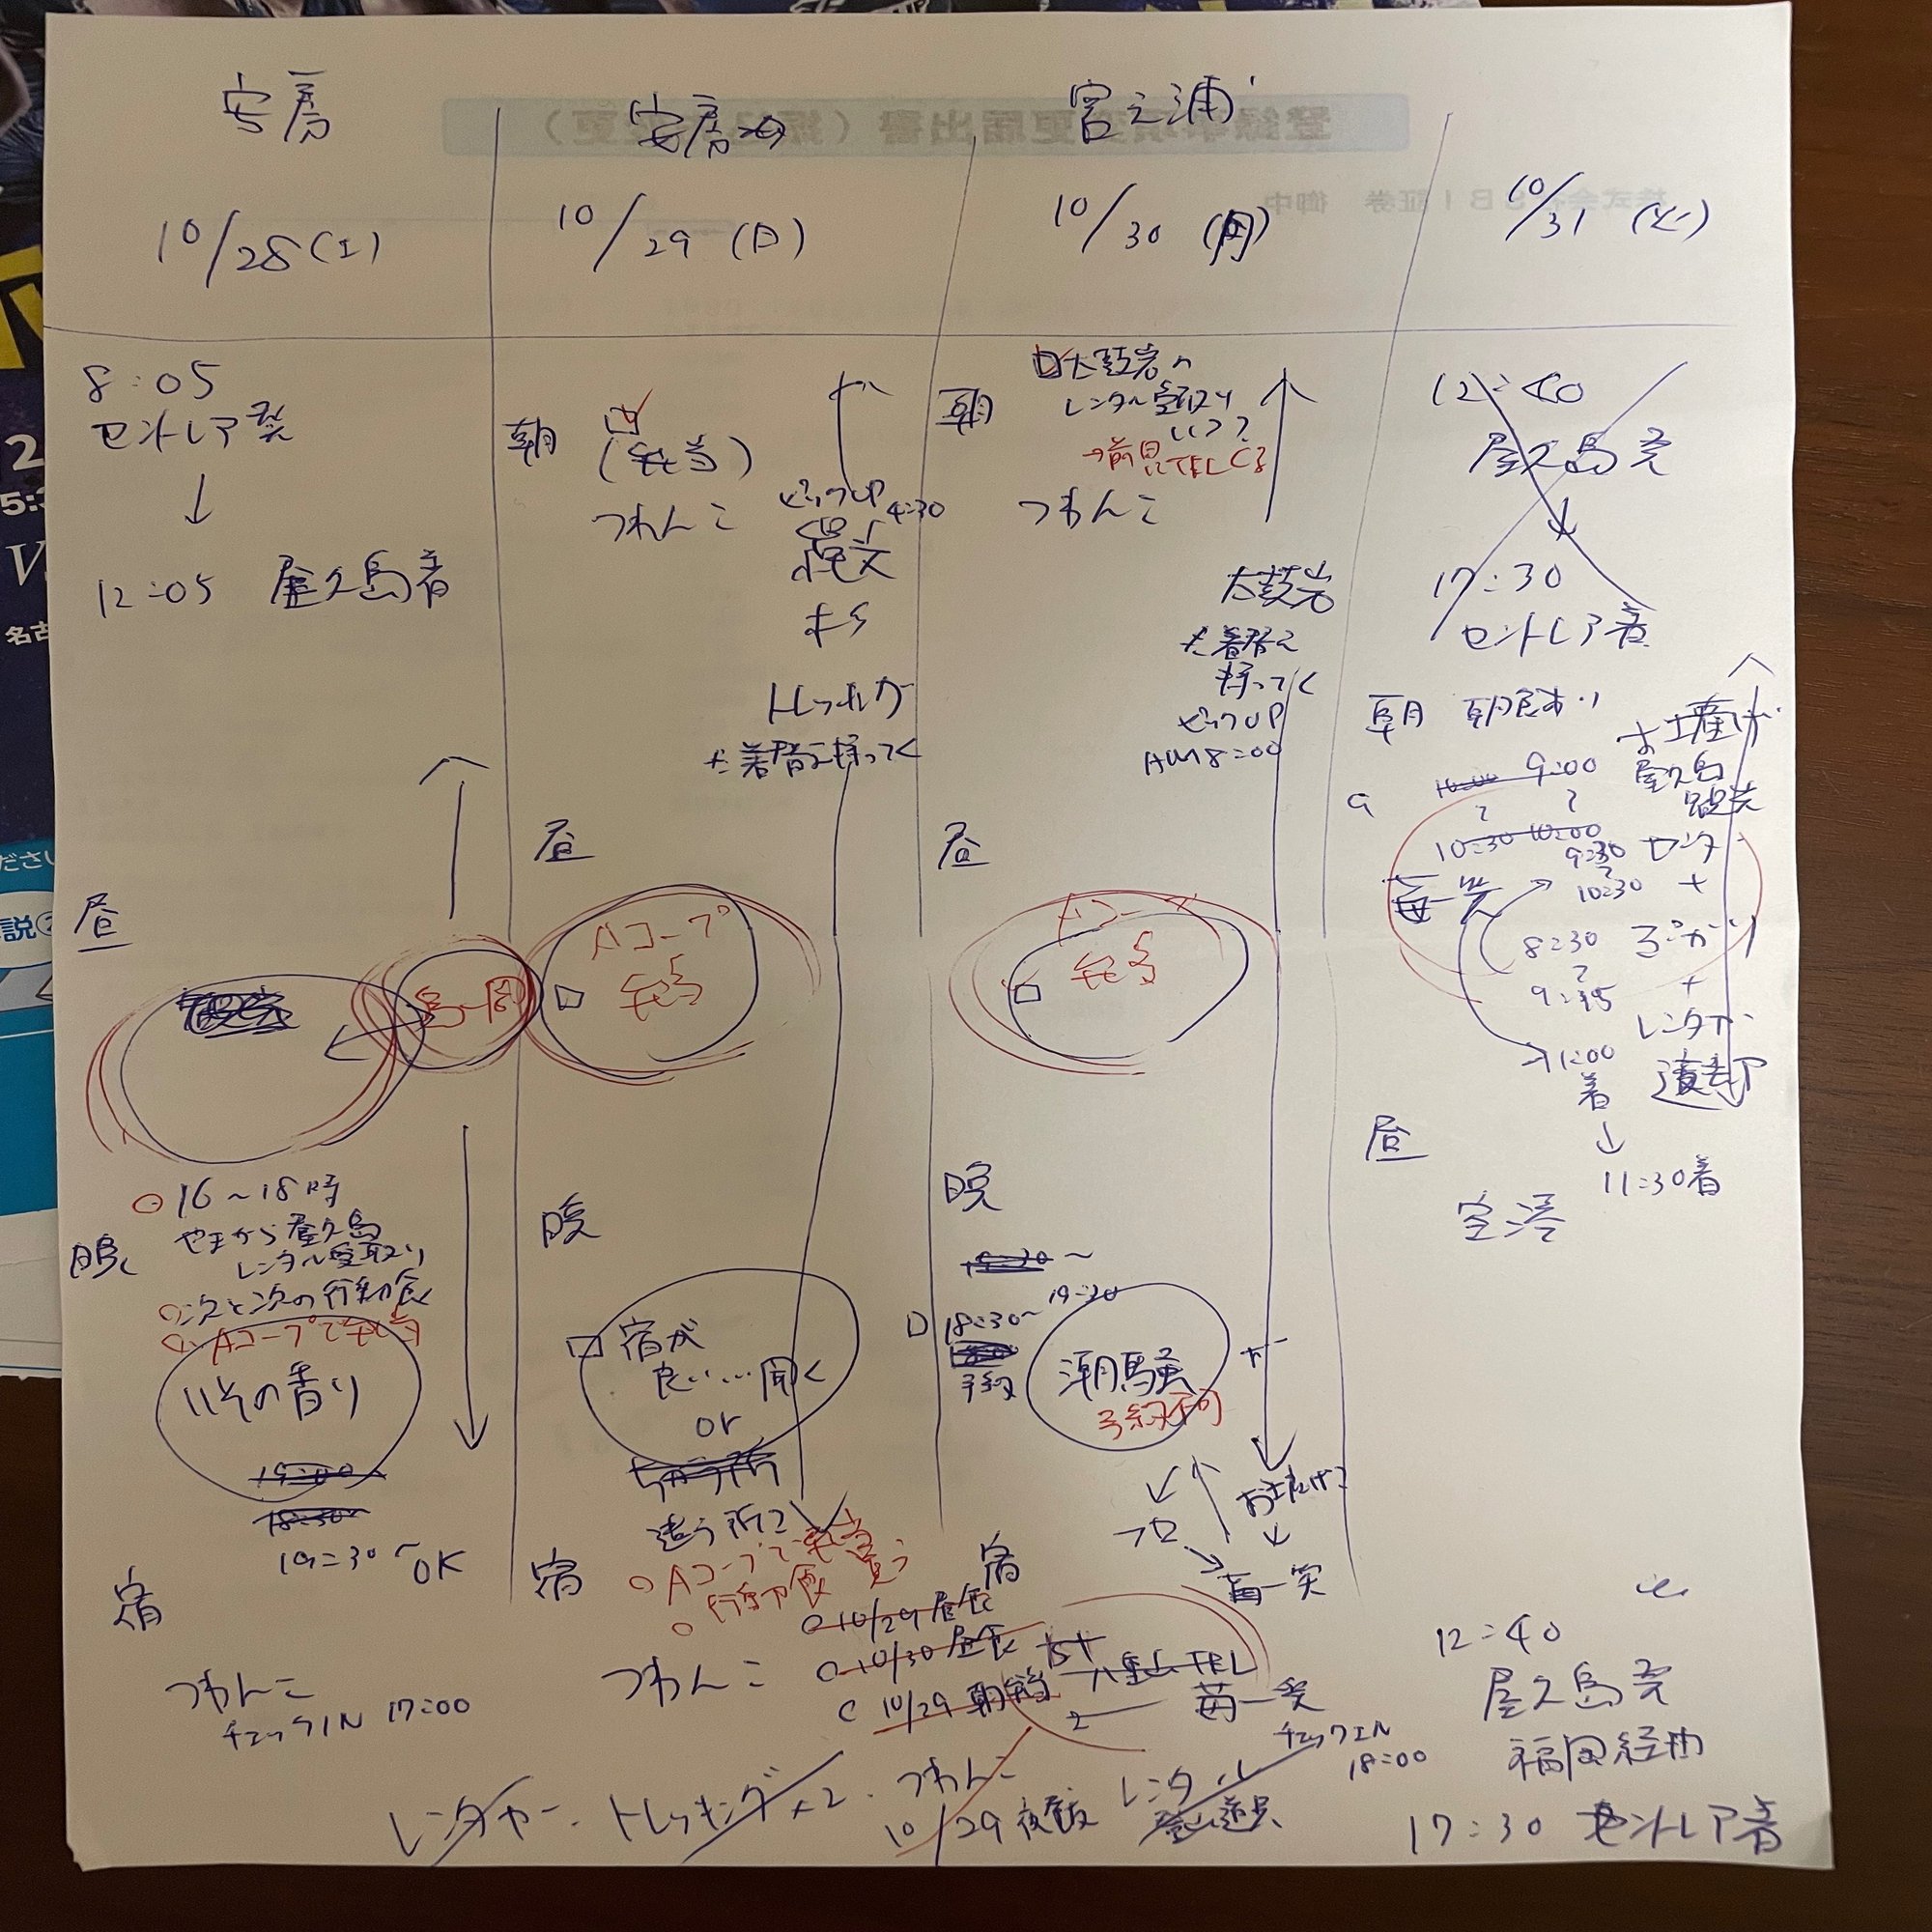 安房
10/28(土)
8:05
セントレア発
↓
12:05 屋久島着
昼
島一周
16〜18時
やまから屋久島
レンタル受取り
晩
次と次の行動食
Aコープで弁当
いその香り
19:00
18:30
19:30〜OK
宿
つわんこ
チェックIN 17:00
安房
10/29(日)
朝
(弁当)
つわんこ
ピックUP
4:30
縄文
すぎ
トレッキング
着替え持ってく
昼
Aコープ
弁当
晩
宿が
良い…聞く
or
違う所?
宿
Aコープで弁当買う
行動食
つわんこ
10/29 昼食
10/30 昼食
10/29 朝
宮之浦
10/30(月)
朝
太鼓岩の
レンタル受取り
いつ?
→前日にTELくる
つわんこ
太鼓岩
着替え
持ってく
ピックUP
AM8:00
昼
Aコープ
弁当
晩
19:20
18:30〜
予約
潮騒
予約不可
フロ
お土産は?
↓
苺一笑
宿
TEL
苺一笑
チェックイン
18:00
10/31(火)
12:40
屋久島発
17:30
セントレア着
朝 朝食あり
お土産
屋久島
観光
センター
+
10:00 9:00
10:30 10:00
9:30
10:30
苺一笑
8:30
9:45
+
レンタカー
返却
11:00
着
↓
11:30着
昼
空港
12:40
屋久島発
福岡経由
17:30 セントレア着
レンタカー. トレッキング×2. つわんこ
10/29 夜飯
レンタル
登山道具